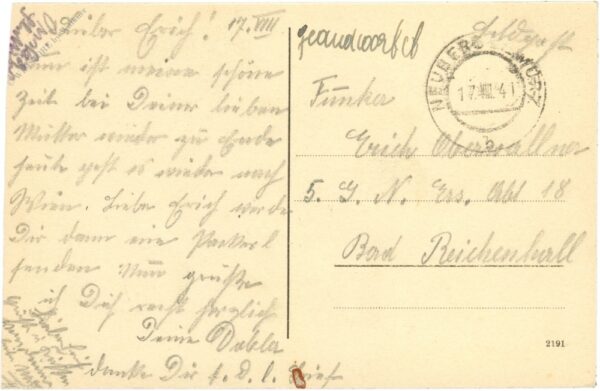 Lieber Erich! 17. VIII
Nun ist meine schöne
Zeit bei Deiner lieben
Mutter wieder zu Ende
heute geht es wieder nach
Wien. Liebe Erich werde
Dir dann ein Packerl
senden Nun grüße
ich Dich recht herzlich
Deine
danke Dir f. D. l. Brief
geantwortet
Feldpost
NEUBERG MÜRZ
17.VIII.41
a
Funker
Erich Oberwallner
5. G. N. Ers. Abt 18
Bad Reichenhall
2191